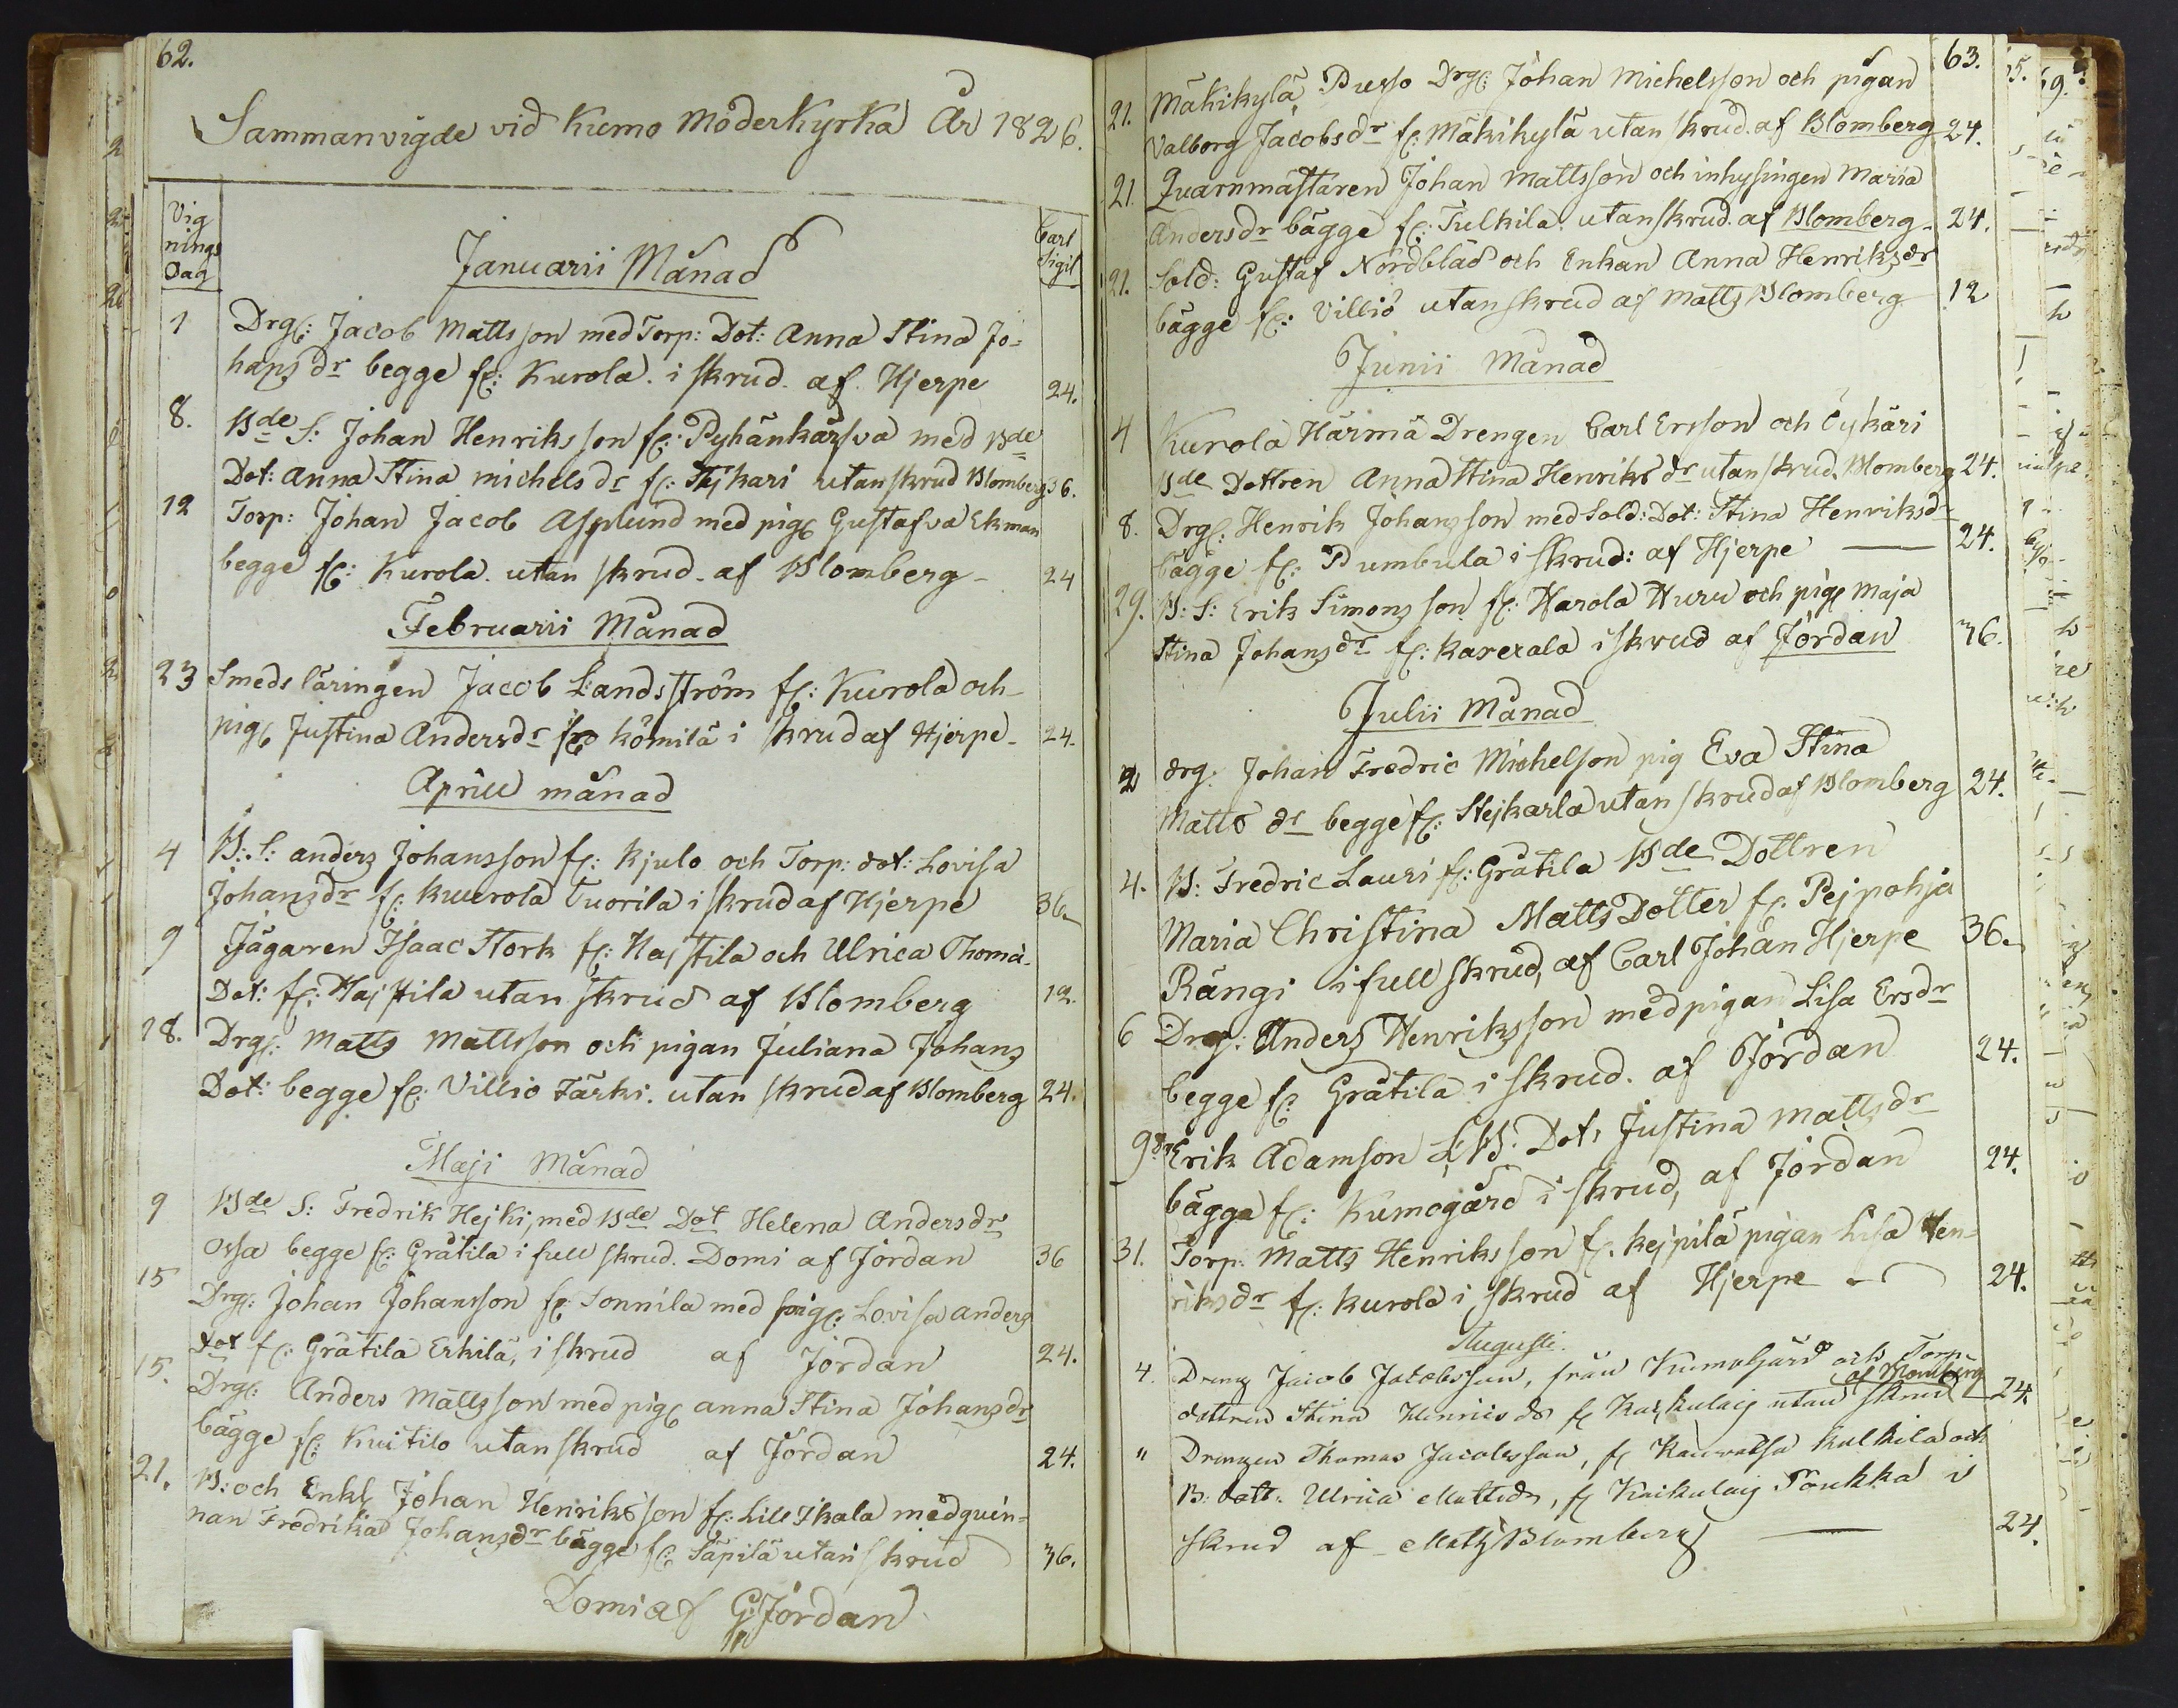 62.
Sammanvigde vid Kumo Moderkyrka År 1826.
Vig
nings
Dag
Januarii Månad
Carl
Sigil
1 Drg: Jacob Mattsson med Torp: Dot: Anna Stina Jo-
hans dr begge fr: Kurola. i skrud. af Hjerpe 24.
8. Bde S: Johan Henriksson fr: Pyhänkårsva med Bde
Dot: Anna Stina Michels dr fr: utan skrud Blomberg 36.
12 Torp: Johan Jacob Asplund med pig Gustafva Ekman
begge fr: Kurola. utan skrud. af Blomberg - 24
Februarii Månad
23 Smeds läringen Jacob Landsström fr: Kurola och
pig Justina Andersdr fr Kömilä i skrud af Hjerpe - 24.
Aprill månad
4 B: S: anders Johansson fr: Kjulo och Torp: dot: Lovisa
Johansdr fr: Kuurola Tuorila i skrud af Hjerpe 36
9 Jägaren Isaac Stork fr: Hajstila och Ulrica Thoma
Dot: fr: Hajstila utan skrud af Blomberg 12.
18. Drg: Matts Mattsson och pigan Juliana Johans
Dot: begge fr: Villiö Färki. utan skrud af Blomberg 24.
Maji Månad
9 Bde S: Fredrik Hejki, med Bde Dot Helena Andersdr
Ossa begge fr: Gråtila i full skrud. Domi af Jordan 36
15 Drg: Johan Johansson fr Sonnila med pig: Lovisa anders
dot fr: Gråtila Erkilä, i skrud af Jordan 24.
15. Drg: Anders Mattsson med pig anna Stina Johansdr
bägge fr: Kuitilo utan skrud af Jordan 24.
21. B: och Enkl Johan Henriksson fr: Lill Ikala med quin-
nan Fredrika Johansdr bägge fr: Säpilä utan skrud 36.
Domi af G: Jordan
63.
21. Mäkikylä Pusso Drg: Johan Michelsson och pigan
Valborg Jacobsdr fr: Mäkikylä utan skrud. af Blomberg 24.
21. Quarnmästaren Johan Mattsson och inhysingen Maria
Andersdr bägge fr: Tulkila. utan skrud. af Blomberg. 24.
21. Sold: Gustaf Nordblad och Enkan Anna Henriksdr
bägge fr: Villiö utan skrud af Matts Blomberg 12
Junii Månad
4 Kurola Härmä Drengen Carl Ersson och Öykäri
Bde Dottren Anna Stina Henriks dr utan skrud. Blomberg 24.
8. Drg: Henrik Johansson med Sold: Dot: Stina Henriksdr
bägge fr: Pumbula i skrud: af Hjerpe 24.
29. B: S: Erik Simonsson fr: Harola Huru och pig Maja
Stina Johansdr fr: Kaserala i skrud af Jordan 36.
Julii Månad
2 drg. Johan Fredric Michelson pig Eva Stina
Matts dr begge fr: Stejkarla utan skrud af Blomberg 24.
4. B: Fredric Lauri fr: Gråtila Bde Dottren
Maria Christina Matts Dotter fr. Pejpohja
Rängi i full skrud, af Carl Johan Hjerpe 36.
6 Drg: Anders Henriksson med pigan Lisa Ersdr
begge fr: Gråtila i skrud. af Jordan 24.
9 Erik Adamson & B: Dot: Justina Mattsdr
bägga fr: Kumogård i skrud, af Jordan 24.
31. Torp: Matts Henriksson fr. Kejpilä pigan Lisa Hen-
riksdr fr: Kurola i skrud af Hjerpe 24.
Augusti.
4. Dreng Jacob Jacobsson, från Kumogård och Torp-
af Blomberg
dottren Stina Henrics dr fr Kaskulaig utan skrud 24
" Drengen Thomas Jacobsson, fr Kauvatsa Kulkila och
B: dott: Ulrica Mattsdr, fr Kaikulaig Poukka i
skrud af Matts Blomberg 24.